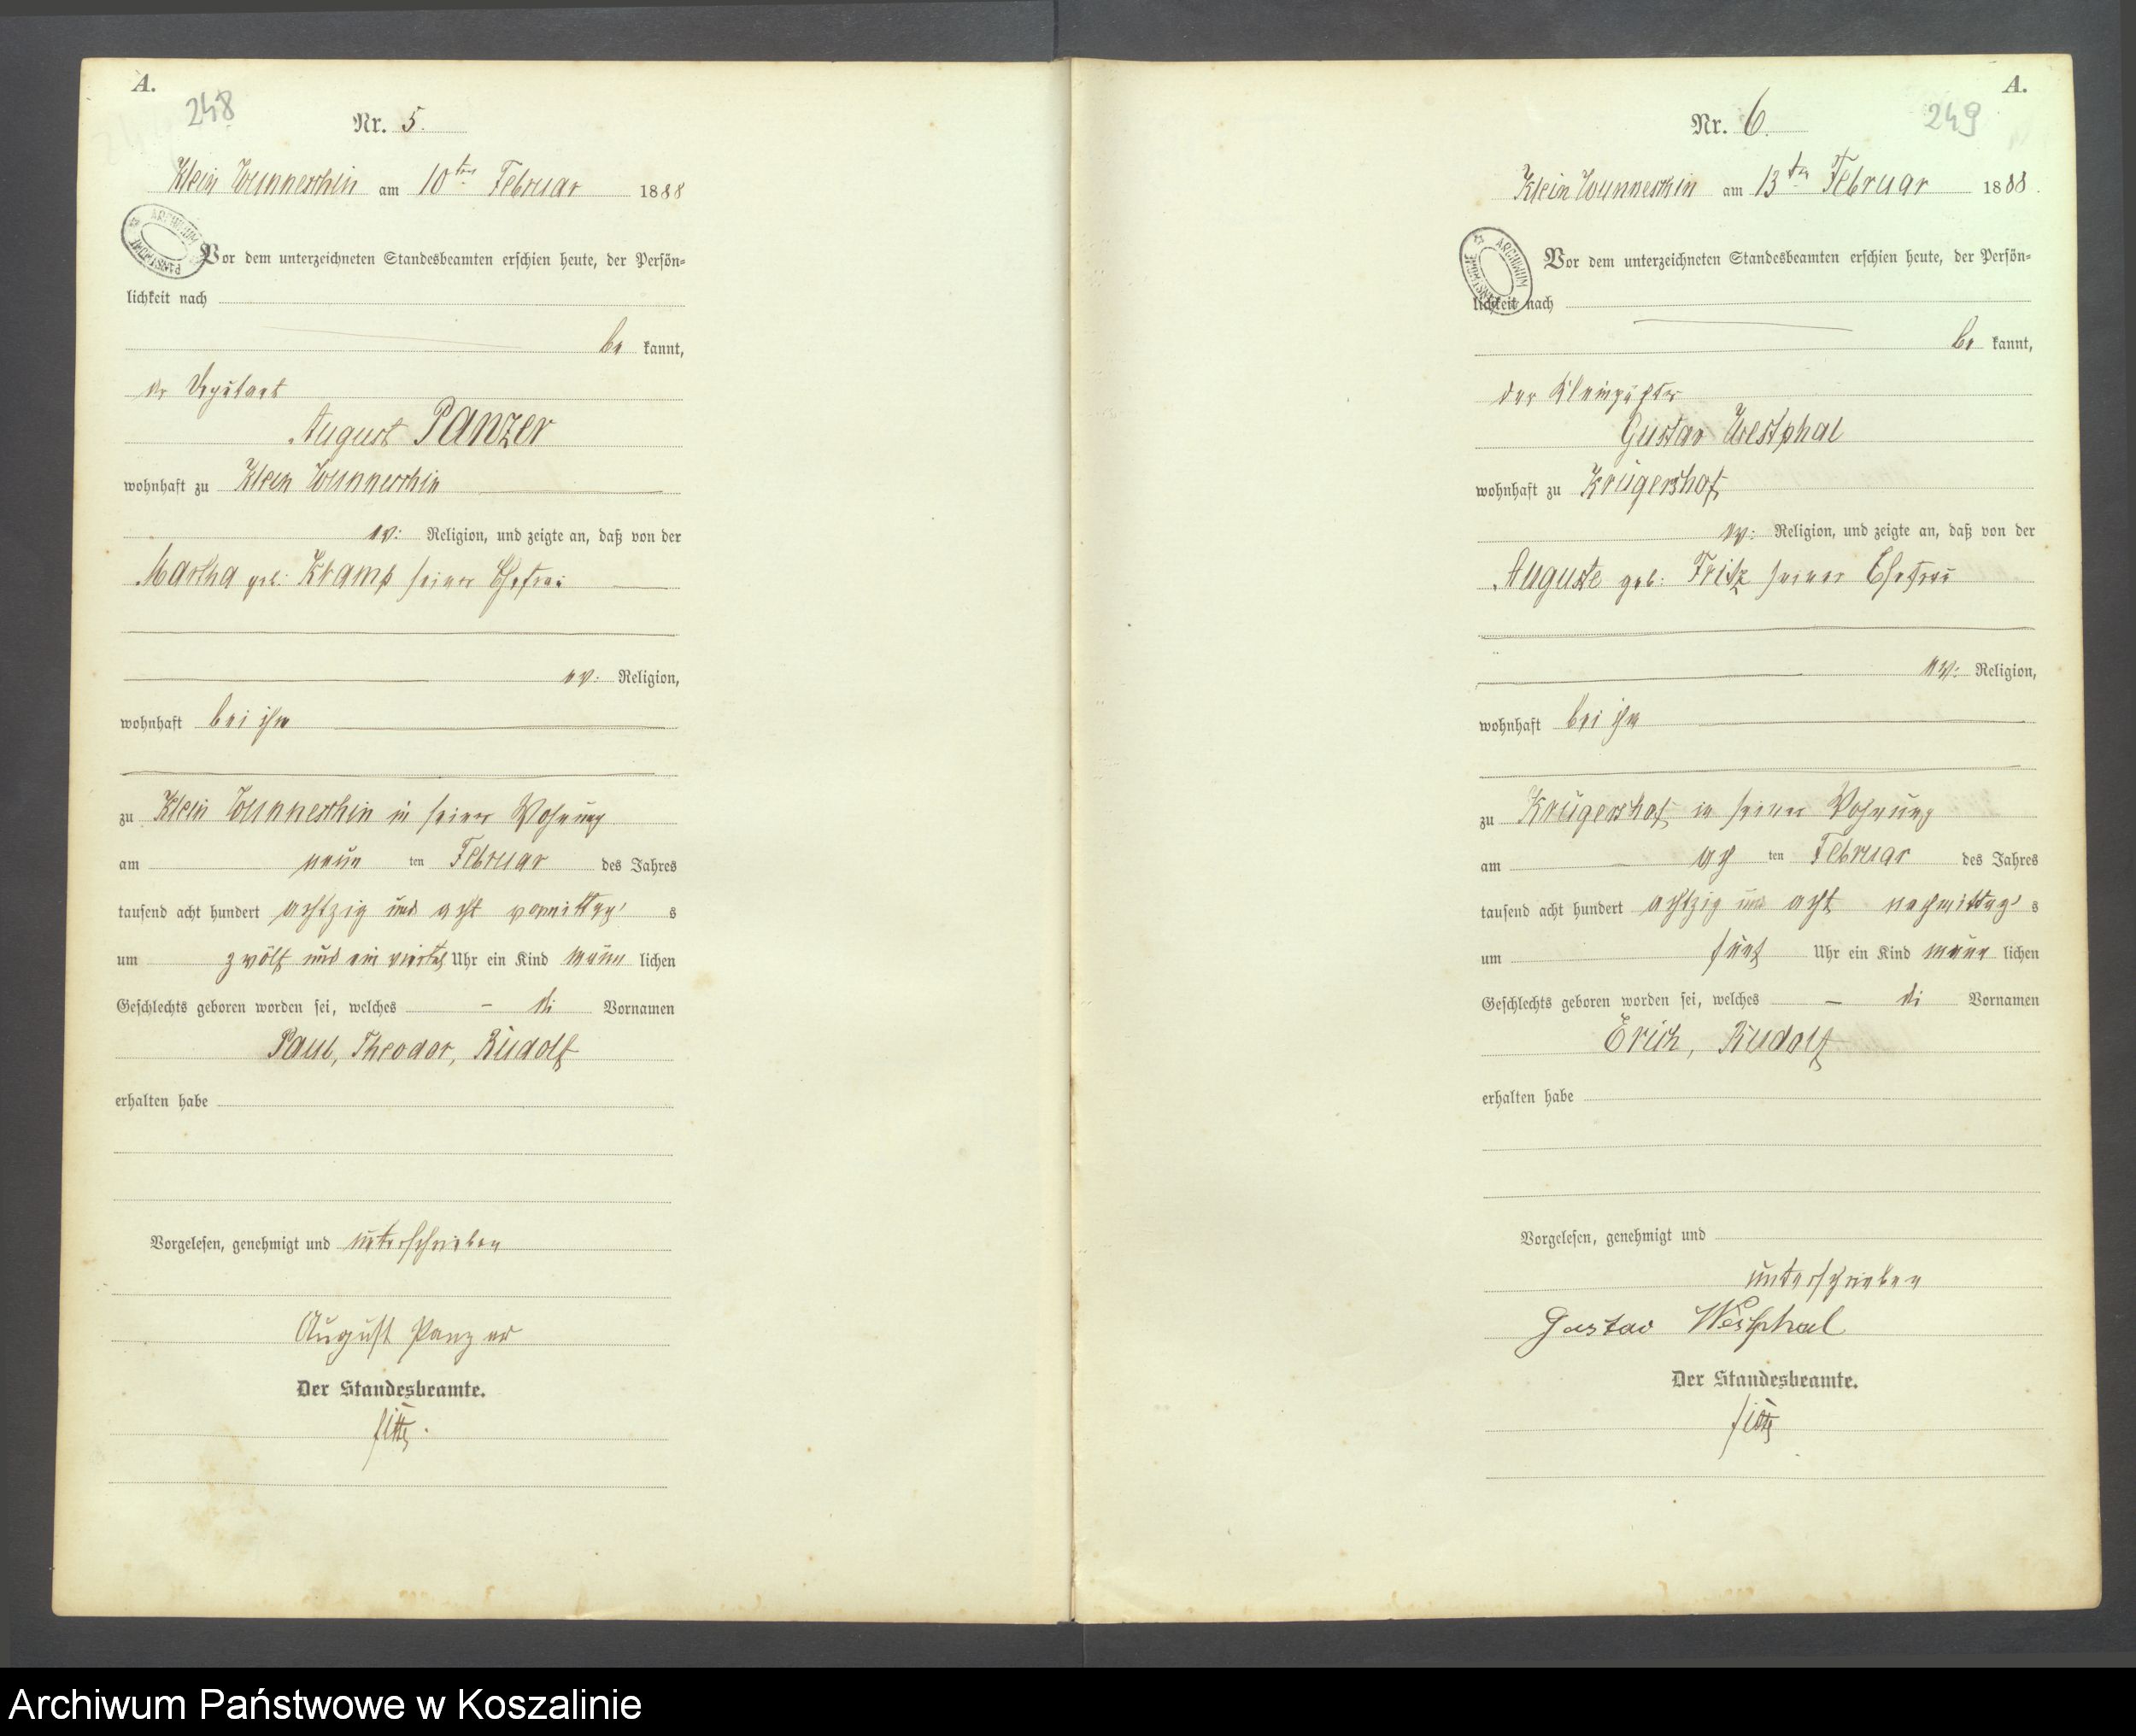 A.
248
Nr. 5.
Klein Wunneschin am 10ten Februar 1888
ARCHIWUM PAŃSTWOWE
Vor dem unterzeichneten Standesbeamten erschien heute, der Persön=
lichkeit nach
be kannt,
der Deputant
August Panzer
wohnhaft zu Klein Wunneschin
ev: Religion, und zeigte an, daß von der
Martha geb: Kramp seiner Ehefrau
ev: Religion,
wohnhaft bei ihm
zu Klein Wunneschin in seiner Wohnung
am neun ten Februar des Jahres
tausend acht hundert achtzig und acht vormittag s
um zwölf und ein viertel Uhr ein Kind männ lichen
Geschlechts geboren worden sei, welches – die Vornamen
Paul, Theodor, Rudolf
erhalten habe
Vorgelesen, genehmigt und unterschrieben
August Panzer
Der Standesbeamte.
A.
249
Nr. 6.
Klein Wunneschin am 13ten Februar 1888.
ARCHIWUM PAŃSTWOWE
Vor dem unterzeichneten Standesbeamten erschien heute, der Persön=
lichkeit nach
be kannt,
der Kleinpächter
Gustav Westphal
wohnhaft zu Krügershof
ev: Religion, und zeigte an, daß von der
Auguste geb: Fritz seiner Ehefrau
ev: Religion,
wohnhaft bei ihm
zu Krügershof in seiner Wohnung
am ach ten Februar des Jahres
tausend acht hundert achtzig und acht nachmittag s
um fünf Uhr ein Kind männ lichen
Geschlechts geboren worden sei, welches – die Vornamen
Erich, Rudolf
erhalten habe
Vorgelesen, genehmigt und
unterschrieben
Gustav Westphal
Der Standesbeamte.
Archiwum Państwowe w Koszalinie